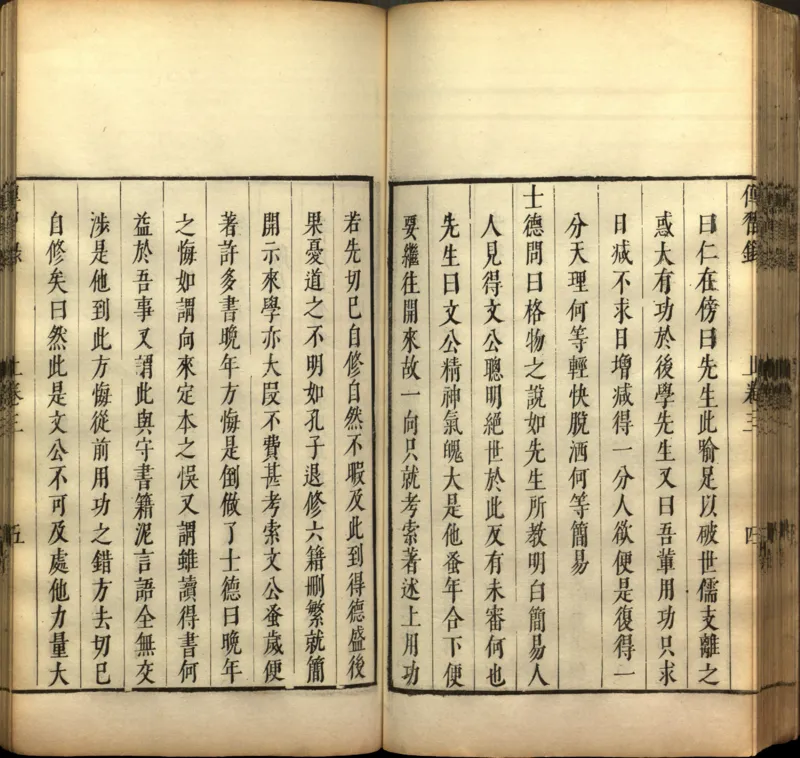 傳習錄 上卷三 四
曰仁在傍曰先生此喻足以破世儒支離之
惑大有功於後學先生又曰吾輩用功只求
日減不求日增減得一分人欲便是復得一
分天理何等輕快脫洒何等簡易
士德問曰格物之說如先生所教明白簡易人
人見得文公聰明絕世於此反有未審何也
先生曰文公精神氣魄大是他蚤年合下便
要繼往開來故一向只就考索著述上用功
若先切己自修自然不暇及此到得德盛後
果憂道之不明如孔子退修六籍刪繁就簡
開示來學亦大段不費甚考索文公蚤歲便
著許多書晚年方悔是倒做了士德曰晚年
之悔如謂向來定本之悞又謂雖讀得書何
益於吾事又謂此與守書籍泥言語全無交
涉是他到此方悔從前用功之錯方去切己
自修矣曰然此是文公不可及處他力量大
傳習錄 上卷三 五